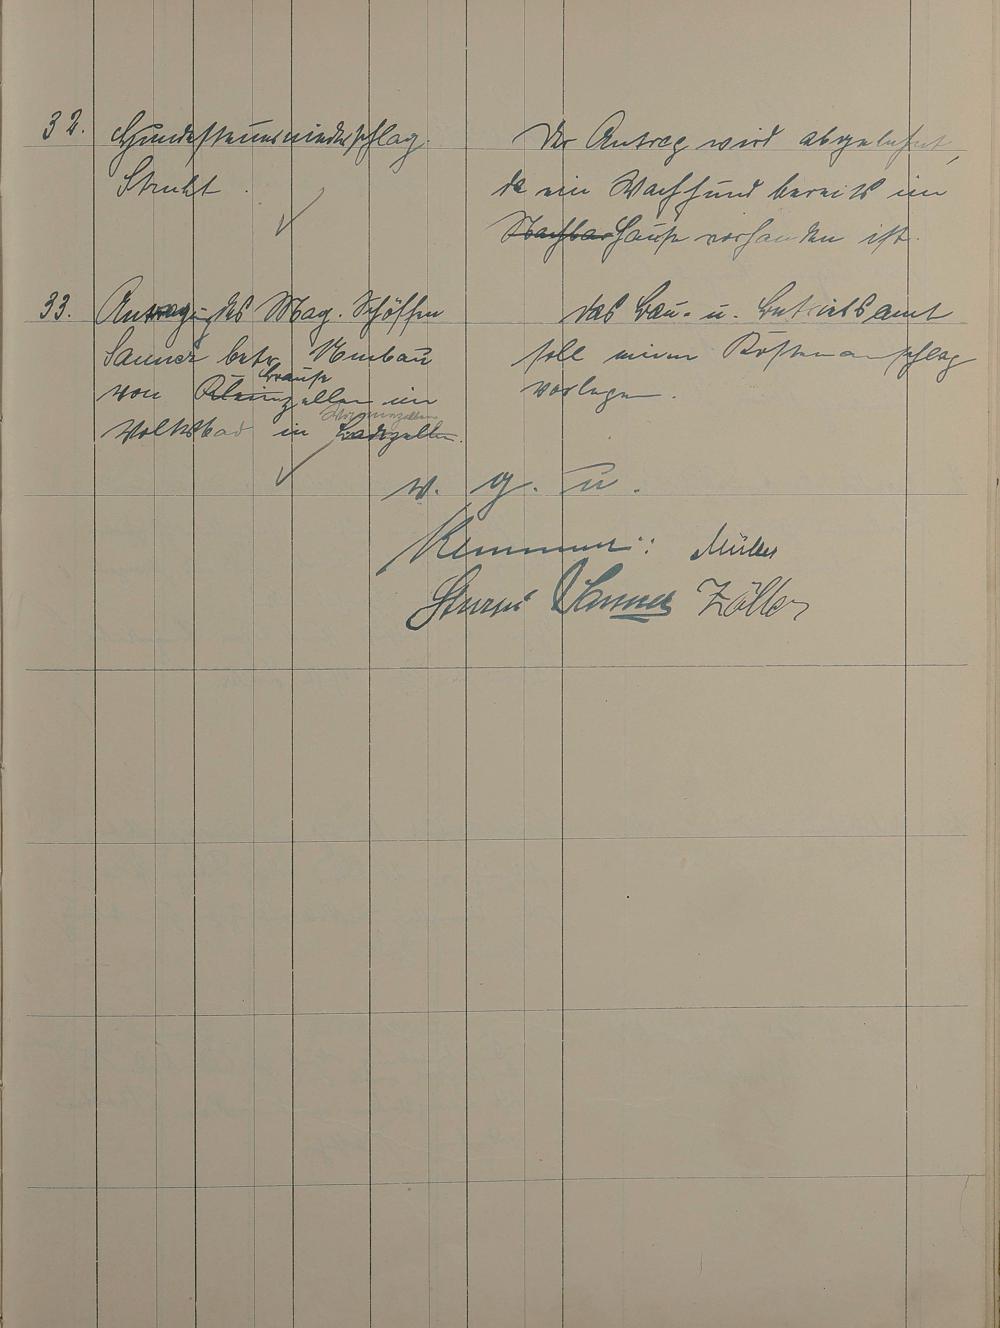 32. Hundesteuerniederschlag
Struht.
Der Antrag wird abgelehnt,
da ein Wachhund bereits im
Nachbar Hause vorhanden ist.
33. Antrag des Mag. Schöffen
Sauner betr. Umbau
von Kleinzellen im
Brause
Volksbad in Badezellen.
Wannenzellen
Das Bau- u. Betriebsamt
soll einen Kostenanschlag
vorlegen.
v. g. u.
Müller
Sauner Zöller